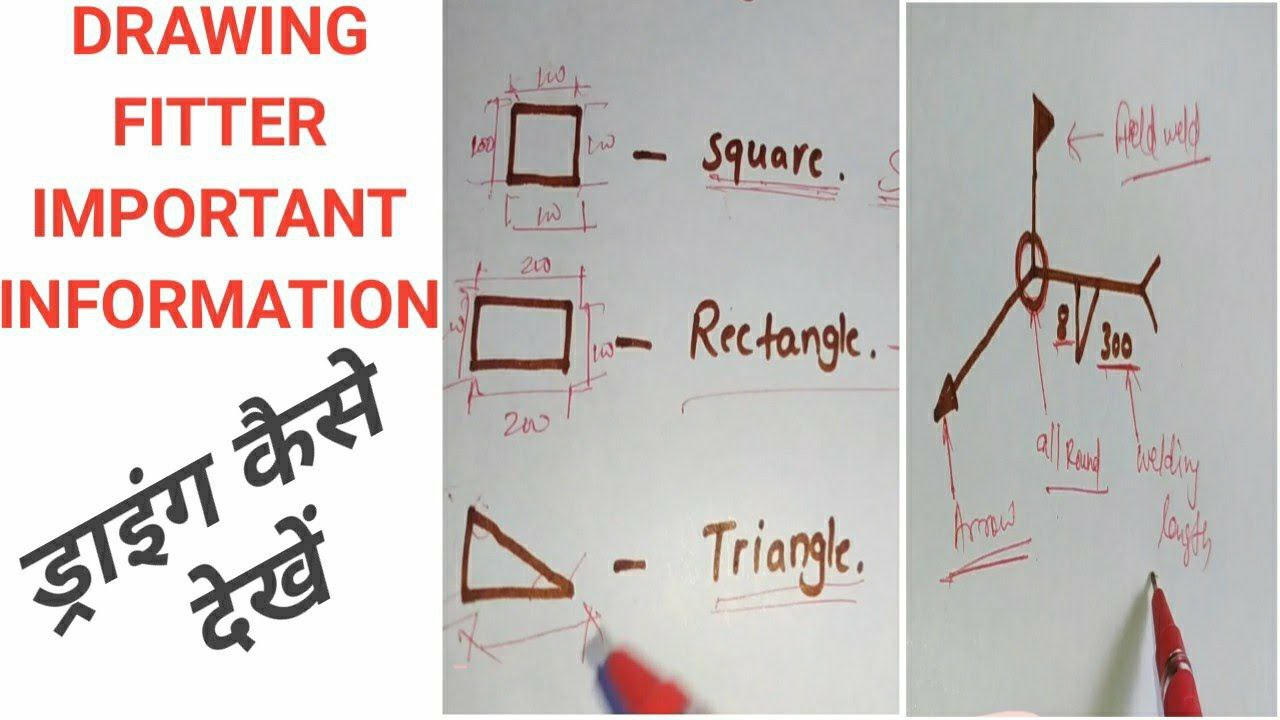 DRAWING
FITTER
IMPORTANT
INFORMATION
ड्राइंग कैसे
देखें
100
100
100
100
square.
200
100
200
Rectangle.
Triangle.
Field weld
8
300
all Round
welding
length
Arrow